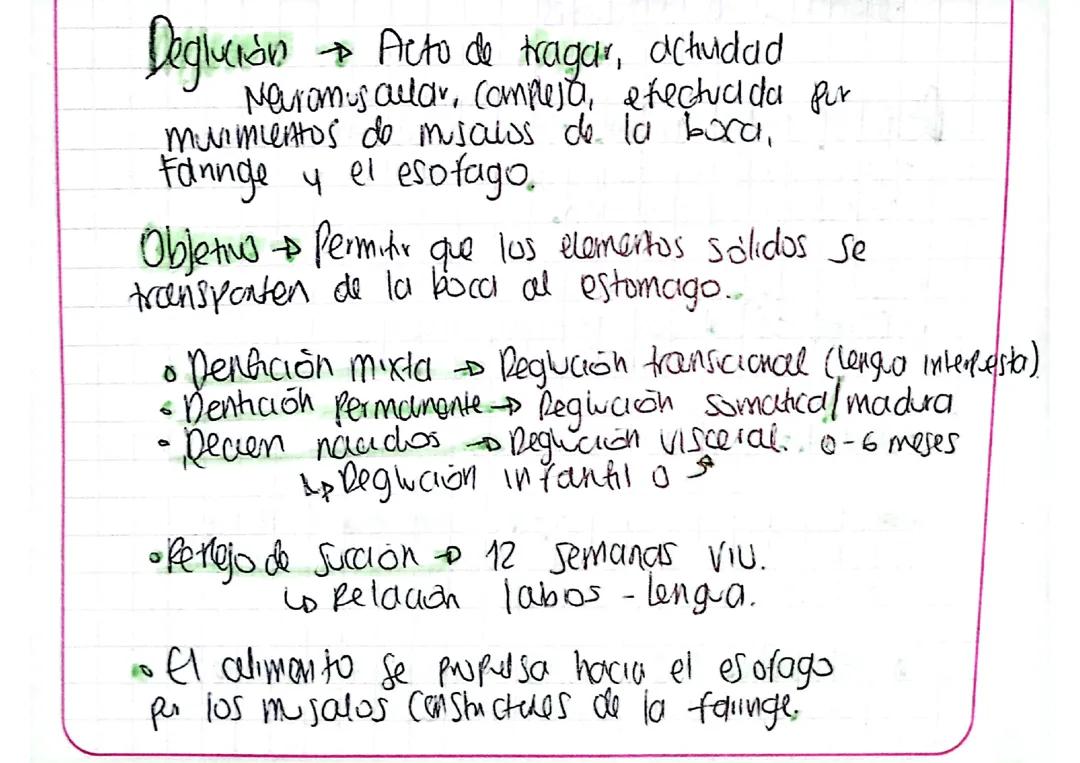 Deglución → Acto de tragar, actividad
Neuromuscular, compleja, efectuada por
movimientos de músculos de la boca,
Faringe y el esofago.
Objetivo → Permitir que los elementos sólidos se
transporten de la boca al estomago.
• Dentición mixta → Deglución transicional (lengua interpuesta)
• Dentición Permanente → Deglución somatica/madura
• Recien nacidos → Deglución visceral. 0-6 meses
↳ Deglución infantil o
• Reflejo de succión → 12 semanas VIU.
↳ Relación labios - lengua.
• El alimento se propulsa hacia el esofago
por los musculos constrictores de la faringe.